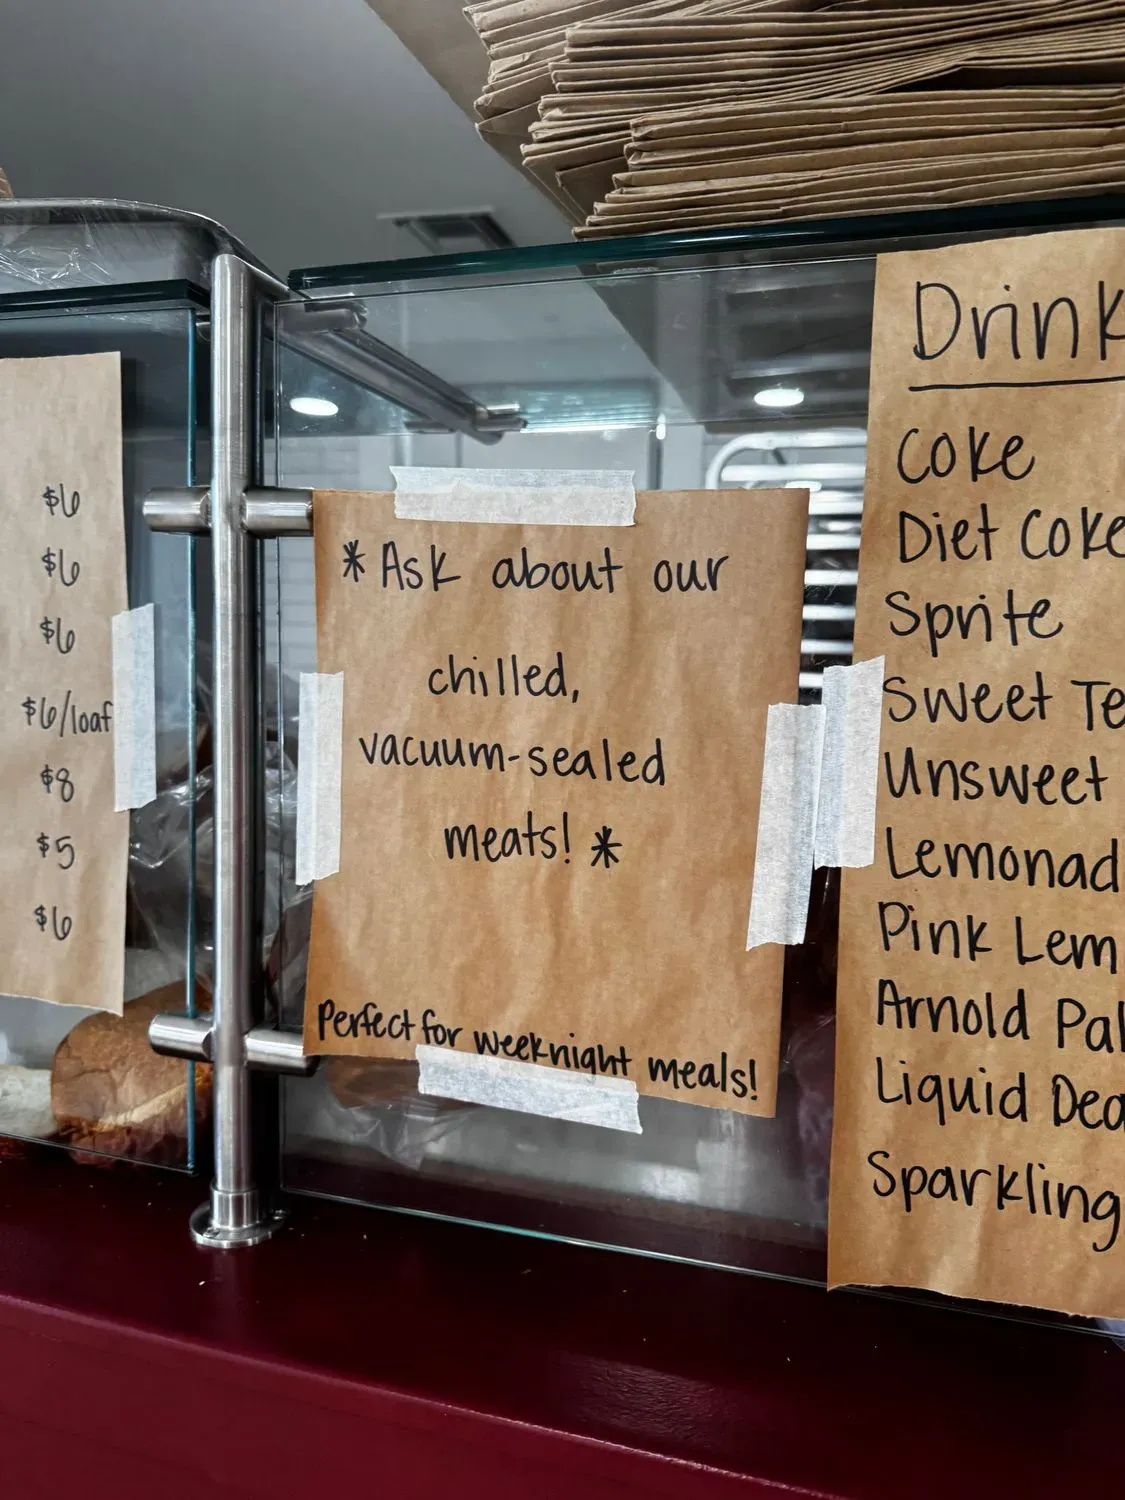 $6
$6
$6
$6/loaf
$8
$5
$6
*Ask about our
chilled,
vacuum-sealed
meats! *
Perfect for weeknight meals!
Drink
Coke
Diet Coke
Sprite
Sweet Te
Unsweet
Lemonad
Pink Lem
Arnold Pal
Liquid Dea
Sparkling